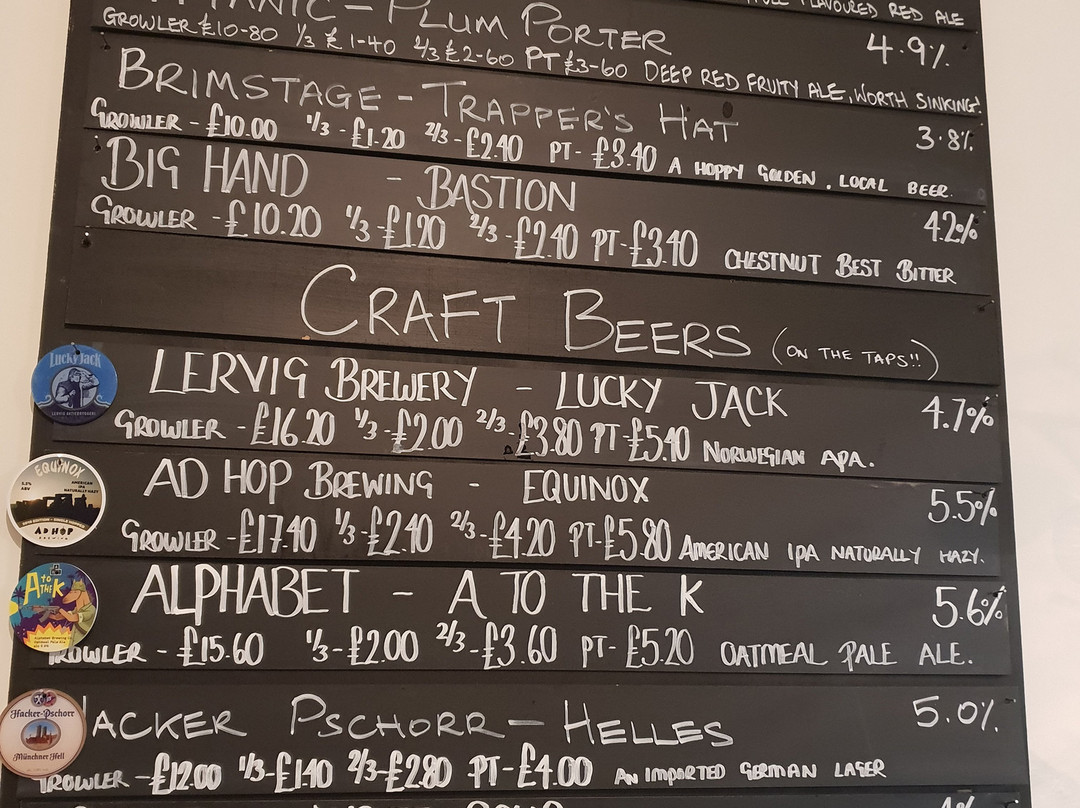 FLAVOURED RED ALE
TITANIC - PLUM PORTER 4.9%
GROWLER £10-80 1/3 £1-40 2/3 £2-60 PT £3-60 DEEP RED FRUITY ALE, WORTH SINKING!
BRIMSTAGE - TRAPPER'S HAT 3.8%
GROWLER - £10.00 1/3 - £1.20 2/3 - £2.40 PT - £3.40 A HOPPY GOLDEN. LOCAL BEER.
BIG HAND - BASTION 4.2%
GROWLER - £10.20 1/3 - £1.20 2/3 - £2.40 PT - £3.40 CHESTNUT BEST BITTER
CRAFT BEERS (ON THE TAPS!!)
Lucky Jack
LERVIG BREWERY - LUCKY JACK 4.7%
GROWLER - £16.20 1/3 - £2.00 2/3 - £3.80 PT - £5.40 NORWEGIAN APA.
EQUINOX
5.5% ABV
AMERICAN IPA NATURALLY HAZY
AD HOP BREWING
AD HOP BREWING - EQUINOX 5.5%
GROWLER - £17.40 1/3 - £2.40 2/3 - £4.20 PT - £5.80 AMERICAN IPA NATURALLY HAZY.
A to THE K
ALPHABET - A TO THE K 5.6%
GROWLER - £15.60 1/3 - £2.00 2/3 - £3.60 PT - £5.20 OATMEAL PALE ALE.
Hacker-Pschorr
Münchner Hell
HACKER PSCHORR - HELLES 5.0%
GROWLER - £12.00 1/3 - £1.40 2/3 - £2.80 PT - £4.00 AN IMPORTED GERMAN LAGER